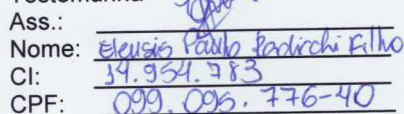 Testemunha
Ass.:
Nome: Eleusis Paulo Radirchi Filho
CI: 14.954.783
CPF: 099.095.776-40